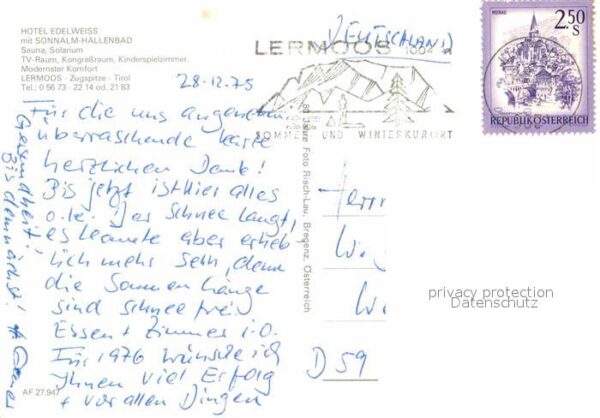 HOTEL EDELWEISS
mit SONNALM-HALLENBAD
Sauna, Solarium
TV-Raum, Kongreßraum, Kinderspielzimmer.
Modernster Komfort
LERMOOS - Zugspitze - Tirol
Tel.: 0 56 73 - 22 14 od. 21 83
28.12.75
Für die uns angenehm
überraschende Karte
herzlichen Dank!
Bis jetzt ist hier alles
o.k. Der Schnee langt,
es könnte aber erheb
lich mehr sein, denn
die Sonnenhänge
sind schneefrei
Essen + Zimmer i.O.
Für 1976 wünsche ich
Ihnen viel Erfolg
+ vor allen Dingen
Gesundheit!
Bis demnächst!
AF 27.947
80 Jahre Foto Risch-Lau, Bregenz, Österreich
DEUTSCHLAND
LERMOOS
SOMMER- UND WINTERKURORT
MURAU
2.50
S
REPUBLIK ÖSTERREICH
Herrn
D 59
privacy protection
Datenschutz